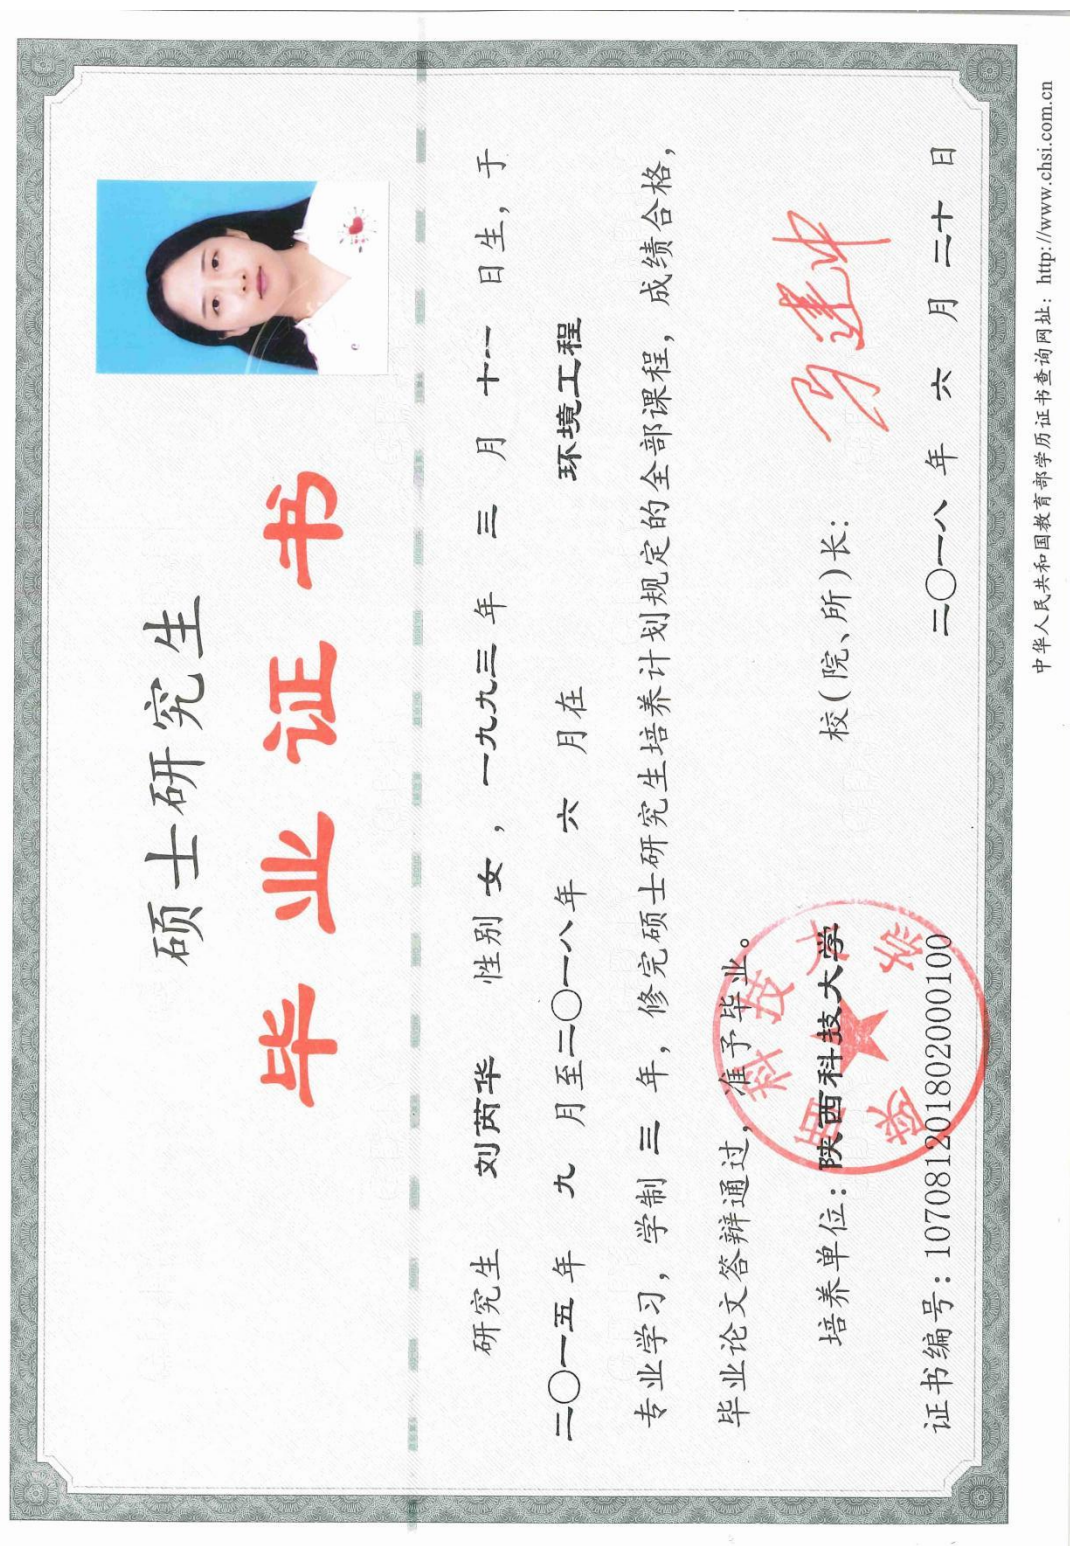 硕士研究生
毕业证书
研究生 刘芮华 性别 女，一九九三 年 三 月 十一 日生，于
二〇一五 年 九 月至 二〇一八 年 六 月在 环境工程
专业学习，学制 三 年，修完硕士研究生培养计划规定的全部课程，成绩合格，
毕业论文答辩通过，准予毕业。
培养单位：陕西科技大学 校（院、所）长：
陕西科技大学
证书编号：107081201802000100 二〇一八 年 六 月 二十 日
中华人民共和国教育部学历证书查询网址：http://www.chsi.com.cn